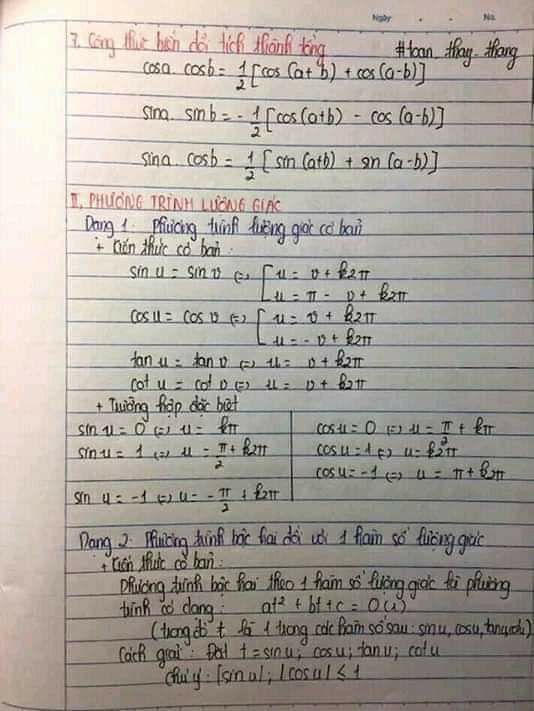 Ngày . . No.
7. Công thức biến đổi tích thành tổng #toan_thay_thang
cosa. cosb = 1/2 [cos(a+b) + cos(a-b)]
sina. sinb = - 1/2 [cos(a+b) - cos(a-b)]
sina. cosb = 1/2 [sin(a+b) + sin(a-b)]
II, PHƯƠNG TRÌNH LƯỢNG GIÁC
Dạng 1. Phương trình lượng giác cơ bản
+ Kiến thức cơ bản:
sin u = sin v (=) [ u = v + k2π
u = π - v + k2π
cos u = cos v (=) [ u = v + k2π
u = - v + k2π
tan u = tan v (=) u = v + k2π
cot u = cot v (=) u = v + k2π
+ Trường hợp đặc biệt
sin u = 0 (=) u = kπ
sin u = 1 (=) u = π/2 + k2π
sin u = -1 (=) u = - π/2 + k2π
cos u = 0 (=) u = π/2 + kπ
cos u = 1 (=) u = k2π
cos u = -1 (=) u = π + k2π
Dạng 2. Phương trình bậc hai đối với 1 hàm số lượng giác
+ Kiến thức cơ bản:
Phương trình bậc hai theo 1 hàm số lượng giác là phương
trình có dạng: at² + bt + c = 0 (1)
(trong đó t là 1 trong các hàm số sau: sinu, cosu, tanu, cotu)
Cách giải: Đặt t = sin u; cos u; tan u; cot u
Chú ý: |sin u|; |cos u| ≤ 1